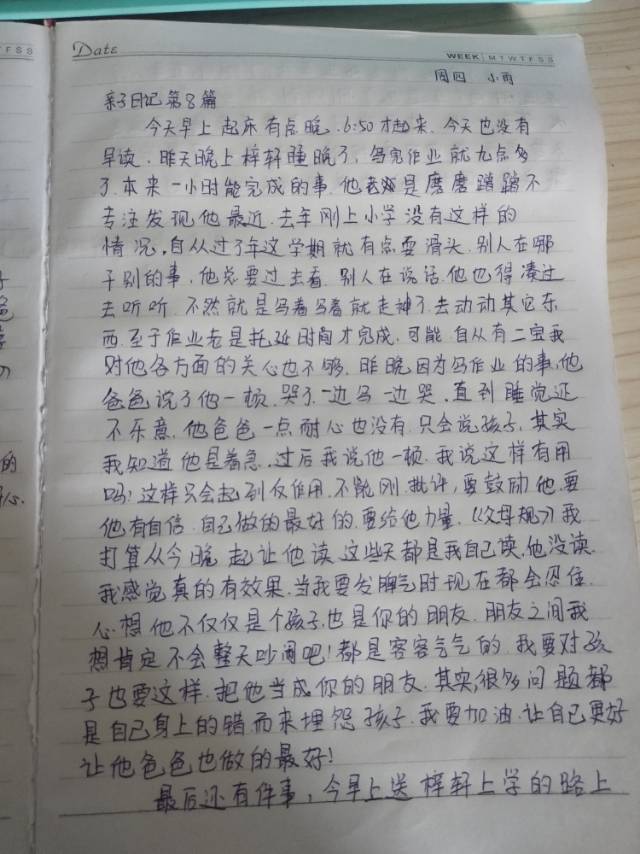 FSS
Date
WEEK M T W T F S S
周四 小雨
亲子日记第8篇
今天早上起床有点晚.6:50才起来.今天也没有
早读.昨天晚上梓轩睡晚了,写完作业就九点多
了.本来一小时能完成的事.他老是磨磨蹭蹭不
专注发现他最近.去年刚上小学没有这样的
情况.自从过了年这学期就有点耍滑头.别人在哪
干别的事,他总要过去看.别人在说话.他也得凑过
去听听.不然就是写着写着就走神了.去动动其它东
西.至于作业老是托延时间才完成.可能.自从有二宝我
对他各方面的关心也不够.昨晚因为写作业的事,他
爸爸说了他一顿.哭了.一边写一边哭.直到睡觉还
不乐意.他爸爸一点耐心也没有.只会说孩子,其实
我知道他是着急.过后我说他一顿.我说这样有用
吗!这样只会起到反作用.不能刚批评,要鼓励他.要
他有自信.自己做的最好的.要给他力量.《父母规》我
打算从今晚起让他读.这些天都是我自己读.他没读.
我感觉真的有效果.当我要发脾气时现在都会忍住.
心想他不仅仅是个孩子,也是你的朋友.朋友之间我
想肯定不会整天吵闹吧!都是客客气气的.我要对孩
子也要这样.把他当成你的朋友.其实,很多问题都
是自己身上的错.而来埋怨孩子.我要加油.让自己更好
让他爸爸也做的最好!
最后还有件事,今早上送梓轩上学的路上
的
心.